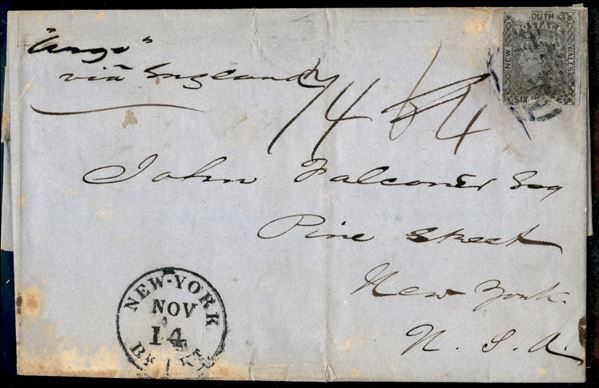 "Argo"
via England
NEW SOUTH WALES
John Falconer Esq
Pine Street
New York
U. S. A.
NEW-YORK
NOV
14